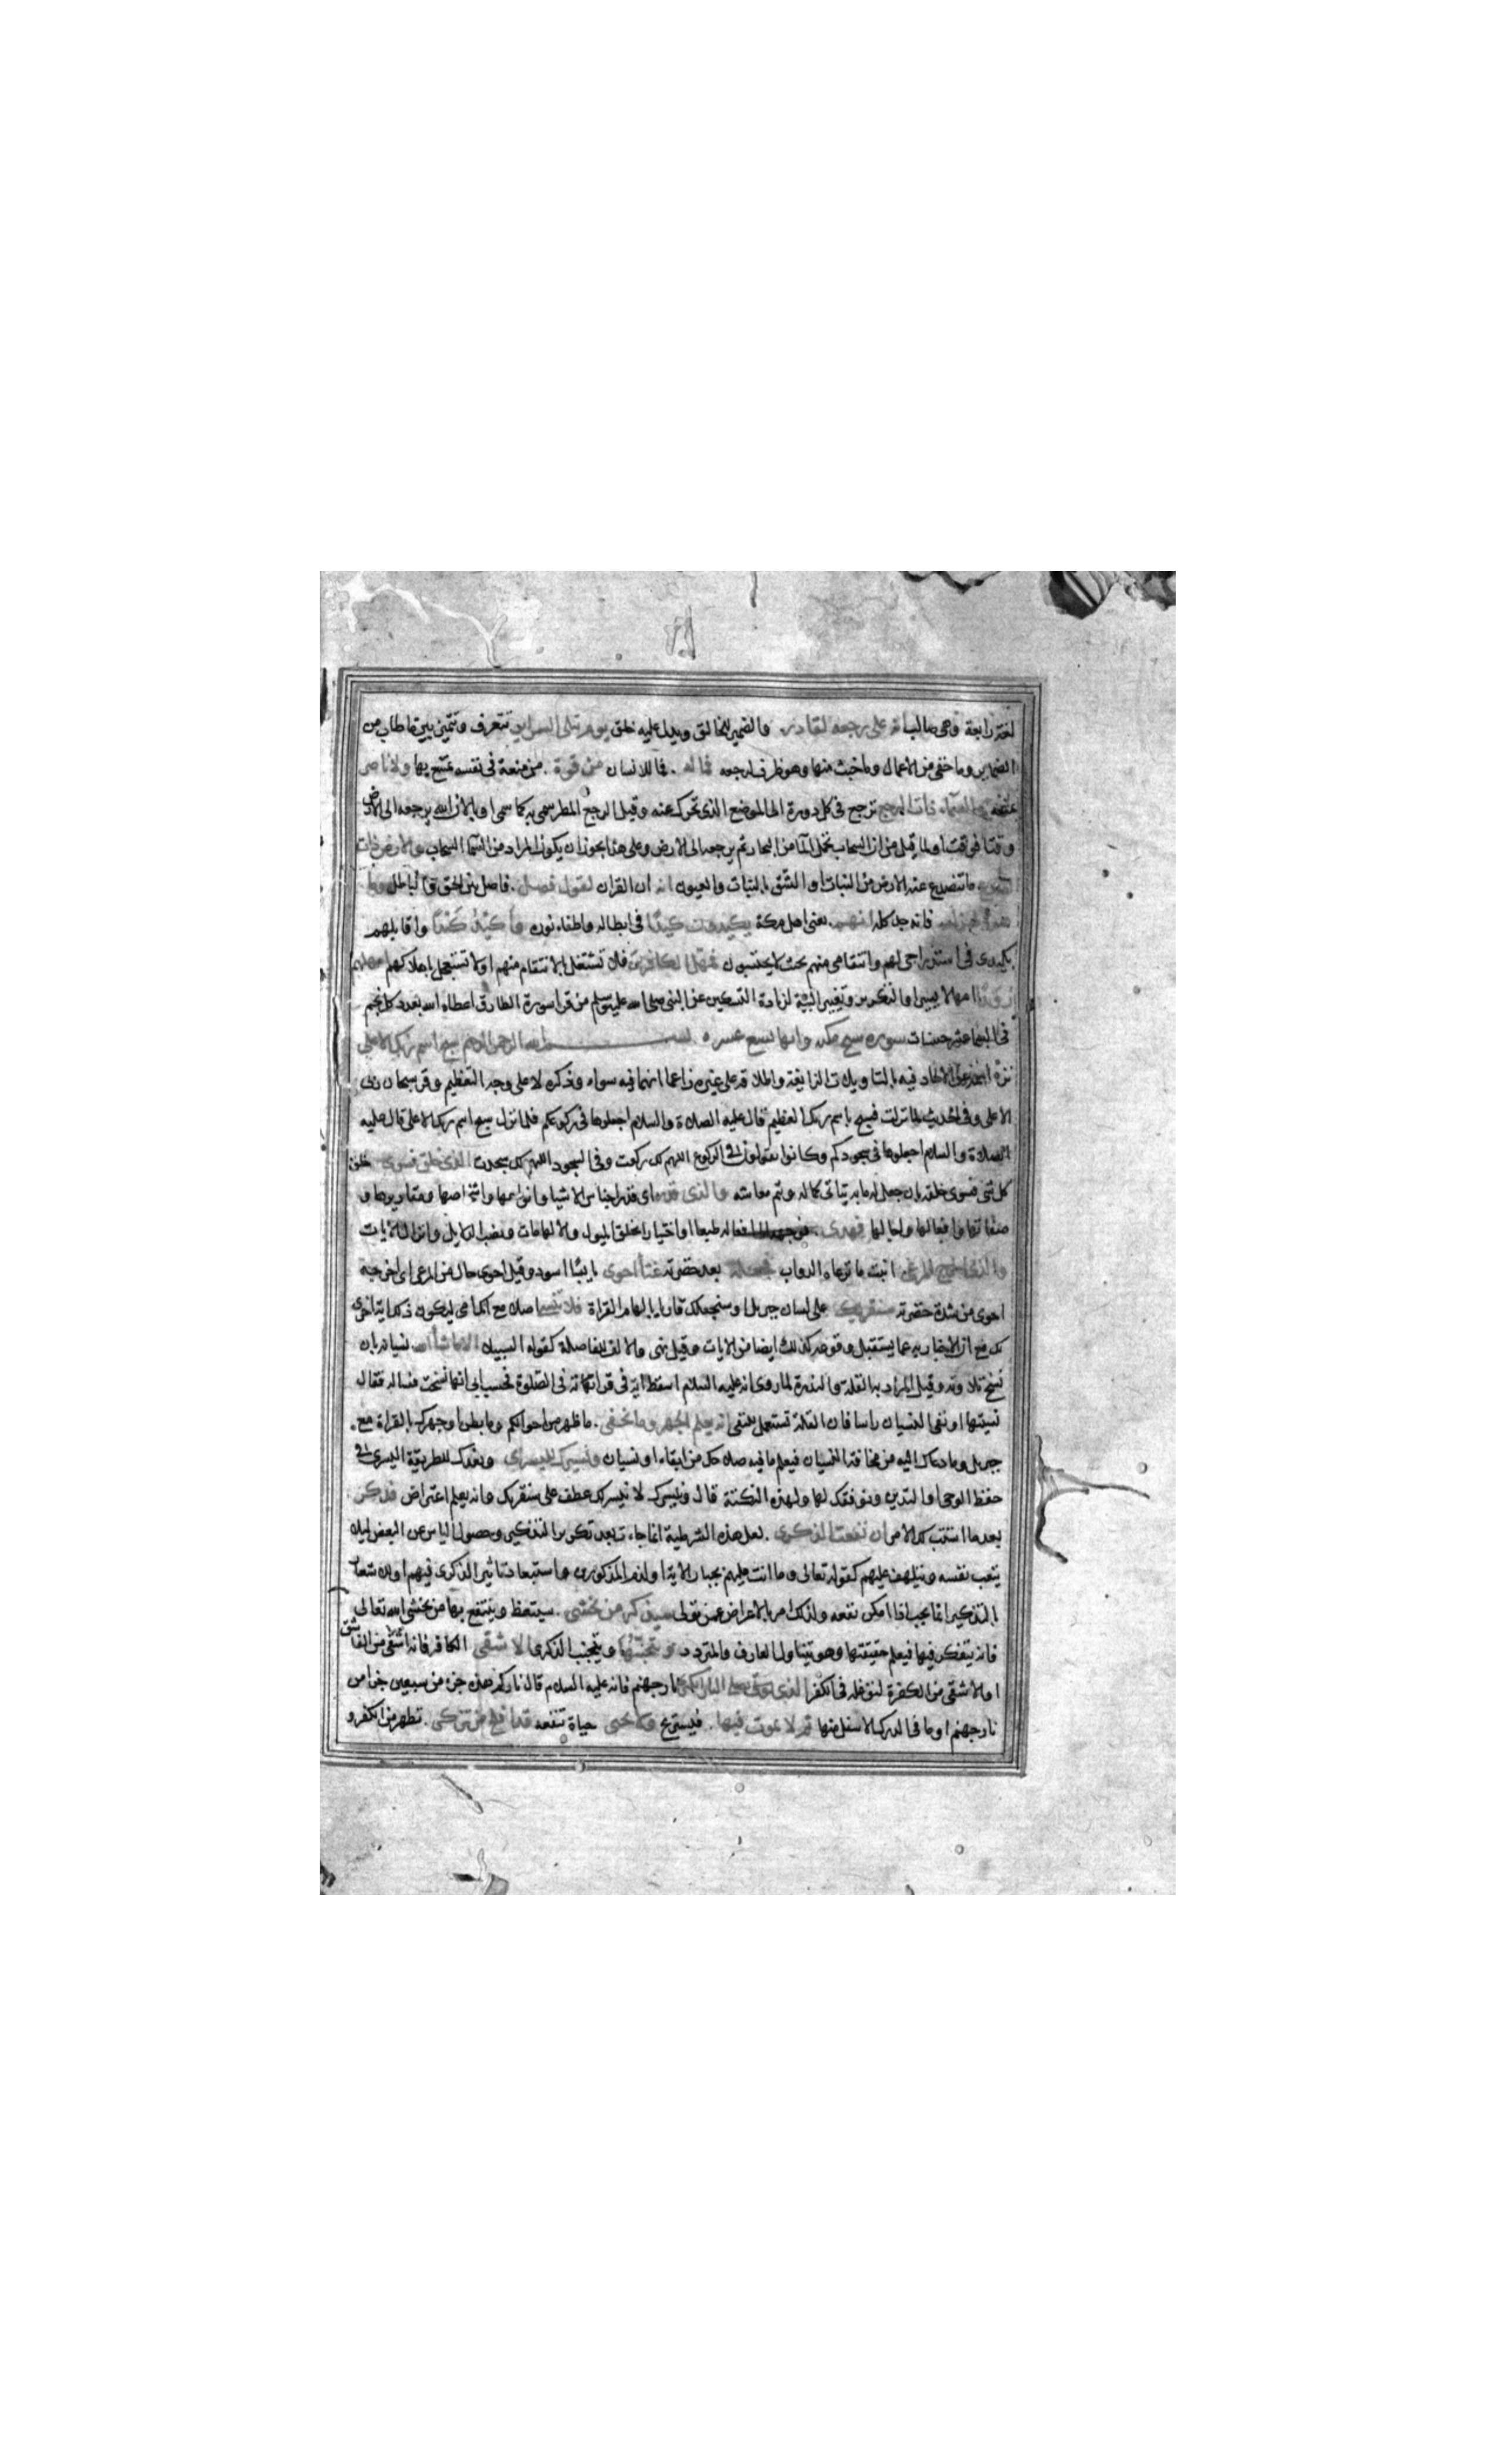 لغة رابعة وهي صالب انه على رجعه لقادر والضمير للخالق ويدل عليه خلق يوم تبلى السراير تتعرف وتتميز بين ما طاب من
الضماير وما خفي من الاعمال وما خبث منها وهو ظرف لرجعه فما له فما للانسان من قوة من منعة في نفسه يمتنع بها ولا ناصر
يمنعه والسماء ذات الرجع ترجع في كل دورة الى الموضع الذي تحرك عنه وقيل الرجع المطر سمي به كما سمي اوبا لان الله يرجعه الى الارض
وقتا فوقتا او لما قيل من ان السحاب تحمل الما من البحار ثم يرجعه الى الارض وعلى هذا يجوز ان يكون المراد من السما السحاب والارض ذات
الصدع ما تتصدع عنه الارض من النبات او الشق بالنبات والعيون انه ان القران لقول فصل فاصل بين الحق والباطل وما
هو بالهزل فانه جد كله انهم يعني اهل مكة يكيدون كيدا في ابطاله واطفاء نوره واكيد كيدا واقابلهم
بكيدي في استدراجي لهم وانتقامي منهم بحيث لا يحتسبون فمهل الكافرين فلا تشتغل بالانتقام منهم او لا تستعجل باهلاكهم امهلهم
رويدا امهالا يسيرا والتكرير وتغيير البنية لزيادة التسكين عن النبي صلى الله عليه وسلم من قرا سورة الطارق اعطاه الله بعدد كل نجم
في السما عشر حسنات سورة سبح مكية وايها تسع عشره بسم الله الرحمن الرحيم سبح اسم ربك الاعلى
نزه اسمه عن الالحاد فيه بالتاويلات الزايغة واطلاقه على غيره زاعما انهما فيه سواء وذكره لا على وجه التعظيم وقرئ سبحان ربي
الاعلى وفي الحديث لما نزلت فسبح باسم ربك العظيم قال عليه الصلاة والسلام اجعلوها في ركوعكم فلما نزل سبح اسم ربك الاعلى قال عليه
الصلاة والسلام اجعلوها في سجودكم وكانوا يقولون في الركوع اللهم لك ركعت وفي السجود اللهم لك سجدت الذي خلق فسوى خلق
كل شئ فسوى خلقه بان جعل له ما به يتاتى كماله ويتم معاشه والذي قدر اي قدر اجناس الاشيا وانواعها واشخاصها ومقاديرها و
صفاتها وافعالها واجالها فهدى فوجهه الى افعاله طبعا او اختيارا بخلق الميول والالهامات ونصب الدلايل وانزال الايات
والذي اخرج المرعى انبت ما ترعاه الدواب فجعله بعد خضرته غثاء احوى يابسا اسود وقيل احوى حال من المرعى اي اخرجه
احوى من شدة خضرته سنقريك على لسان جبريل او سنجعلك قاريا بالهام القراة فلا تنسى اصلا مع انك امي ليكون ذلك اية اخرى
لك مع ان الاخبار به عما يستقبل ووقوعه كذلك ايضا من الايات وقيل نهي والالف للفاصلة كقوله السبيلا الا ما شاء الله نسيانه بان
نسخ تلاوته وقيل المراد به القلة والندرة لما روي انه عليه السلام اسقط اية في قراته في الصلوة فحسب ابي انها نسخت فساله فقال
نسيتها او نفي النسيان راسا فان القلة تستعمل للنفي انه يعلم الجهر وما يخفى ما ظهر من احوالكم وما بطن او جهرك بالقراة مع
جبريل وما دعاك اليه من مخافة النسيان فيعلم ما فيه صلاحك من ابقاء او نسيان ونيسرك لليسرى ونعدك للطريقة اليسرى في
حفظ الوحي او التدين ونوفقك لها ولهذه النكتة قال ونيسرك لا نيسر لك عطف على سنقريك وانه يعلم اعتراض فذكر
بعد ما استتب لك الامر ان نفعت الذكرى لعل هذه الشرطية انما جاءت بعد تكرير التذكير وحصول الياس عن البعض ليلا
يتعب نفسه ويتلهف عليهم كقوله تعالى وما انت عليهم بجبار الاية او لذم المذكورين واستبعاد تاثير الذكرى فيهم او للاشعار
بان التذكير انما يجب اذا امكن نفعه ولذلك امر بالاعراض عمن تولى سيذكر من يخشى سيتعظ وينتفع بها من يخشى الله تعالى
فانه يتفكر فيها فيعلم حقيقتها وهو يتناول العارف والمتردد ويتجنبها ويتجنب الذكرى الاشقى الكافر فانه اشقى من الفاسق
او الاشقى من الكفرة لتوغله في الكفر الذي يصلى النار الكبرى نار جهنم فانه عليه السلام قال ناركم هذه جزء من سبعين جزا من
نار جهنم او ما في الدرك الاسفل منها ثم لا يموت فيها فيستريح ولا يحيى حياة تنفعه قد افلح من تزكى تطهر من الكفر و